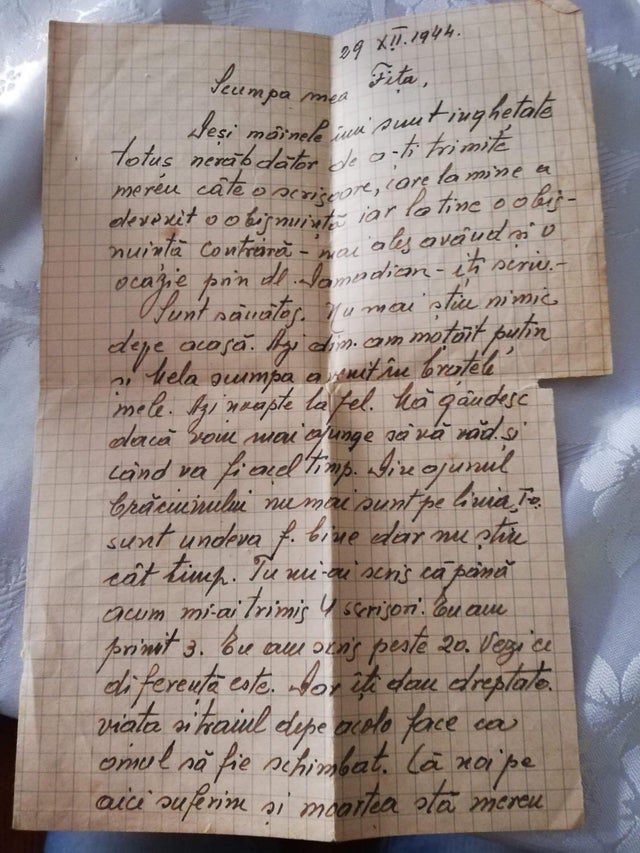 29 XII.1944.
Scumpa mea Fița,
Deși mâinele îmi sunt înghețate
totuș nerăbdător de a-ți trimite
mereu câte o scrisoare, care la mine a
devenit o obișnuință iar la tine o obiș-
nuință contrară - mai ales având și o
ocazie prin dl. Damadian - îți scriu.-
Sunt sănătos. Nu mai știu nimic
depe acasă. Azi dim. am moțăit puțin
și Mela scumpa a venit în brațele
mele. Azi noapte la fel. Mă gândesc
dacă voiu mai ajunge să vă văd și
când va fi acel timp. Din ajunul
Crăciunului nu mai sunt pe linia I-a
sunt undeva f. bine dar nu știu
cât timp. Tu mi-ai scris că până
acum mi-ai trimis 4 scrisori. Eu am
primit 3. Eu am scris peste 20. Vezi ce
diferență este. Dar îți dau dreptate.
viața și traiul depe acolo face ca
omul să fie schimbat. Că noi pe
aici suferim și moartea stă mereu